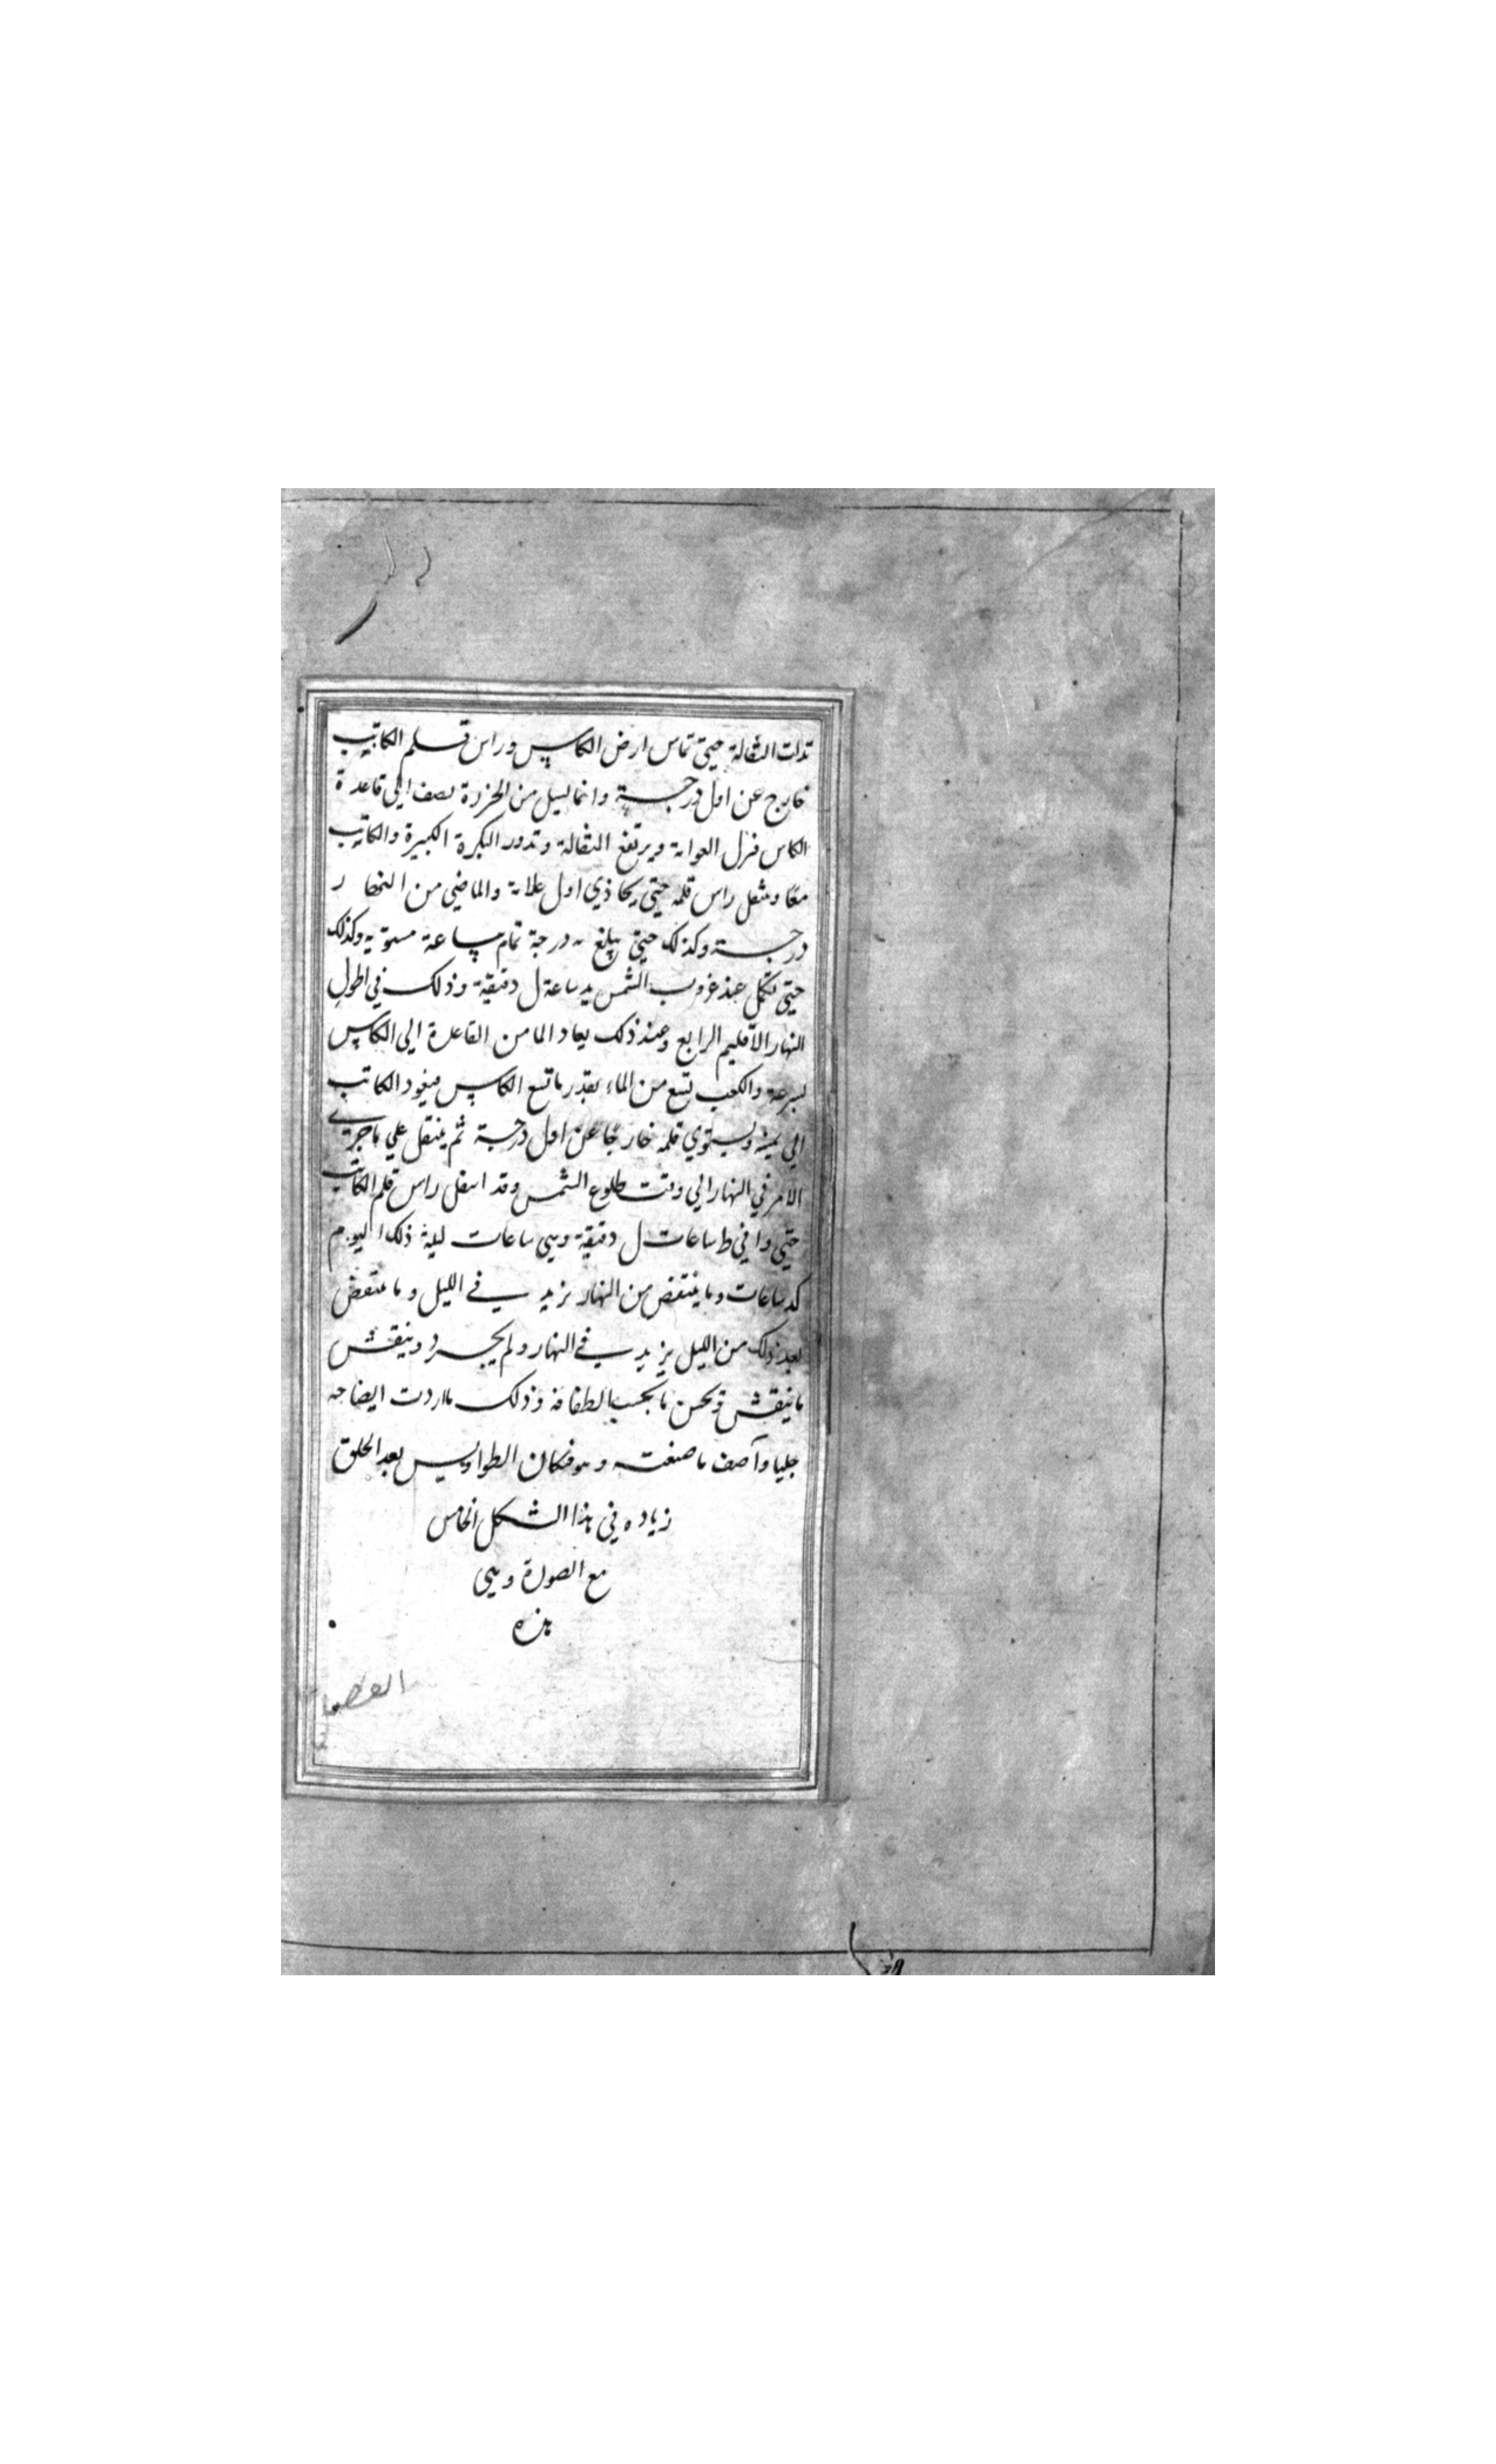 تدلت الثقالة حتي تماس ارض الكاس وراس قلم الكاتب
خارج عن اول درجة وانما ليسيل من الخرزة نصف الي قاعدة
الكاس فنزل العوامة ويرتفع الثقالة وتدور البكرة الكبيرة والكاتب
معا وينتقل راس قلمه حتي يحاذي اول علامة والماضي من النهار
درجة وكذلك حتي يبلغ يه درجة تمام ساعة مستوية وكذلك
حتي تكمل عند غروب الشمس يد ساعة ل دقيقة وذلك في اطول
النهار الاقليم الرابع وعند ذلك يعاد الما من القاعدة الي الكاس
بسرعة والكعب تسع من الماء بقدر ما تسع الكاس فيعود الكاتب
الي يمينه ويستوي قلمه خارجا عن اول درجة ثم ينتقل علي ما جري
الامر في النهار الي وقت طلوع الشمس وقد انتقل راس قلم الكاتب
حتي وافي ط ساعات ل دقيقة وهي ساعات ليلة ذلك اليوم
كد ساعات وما ينتقض من النهار يزيد في الليل وما ينتقض
بعد ذلك من الليل يزيد في النهار ولم يجرد وينقش
ما ينقش ويحسن ما بحسب الطفافه وذلك ما اردت ايضاحه
جليا وآصف ما صنعته وهو فنكان الطواويس بعد الحلق
زياده في هذا الشكل الخامس
مع الصورة وهي
هذه